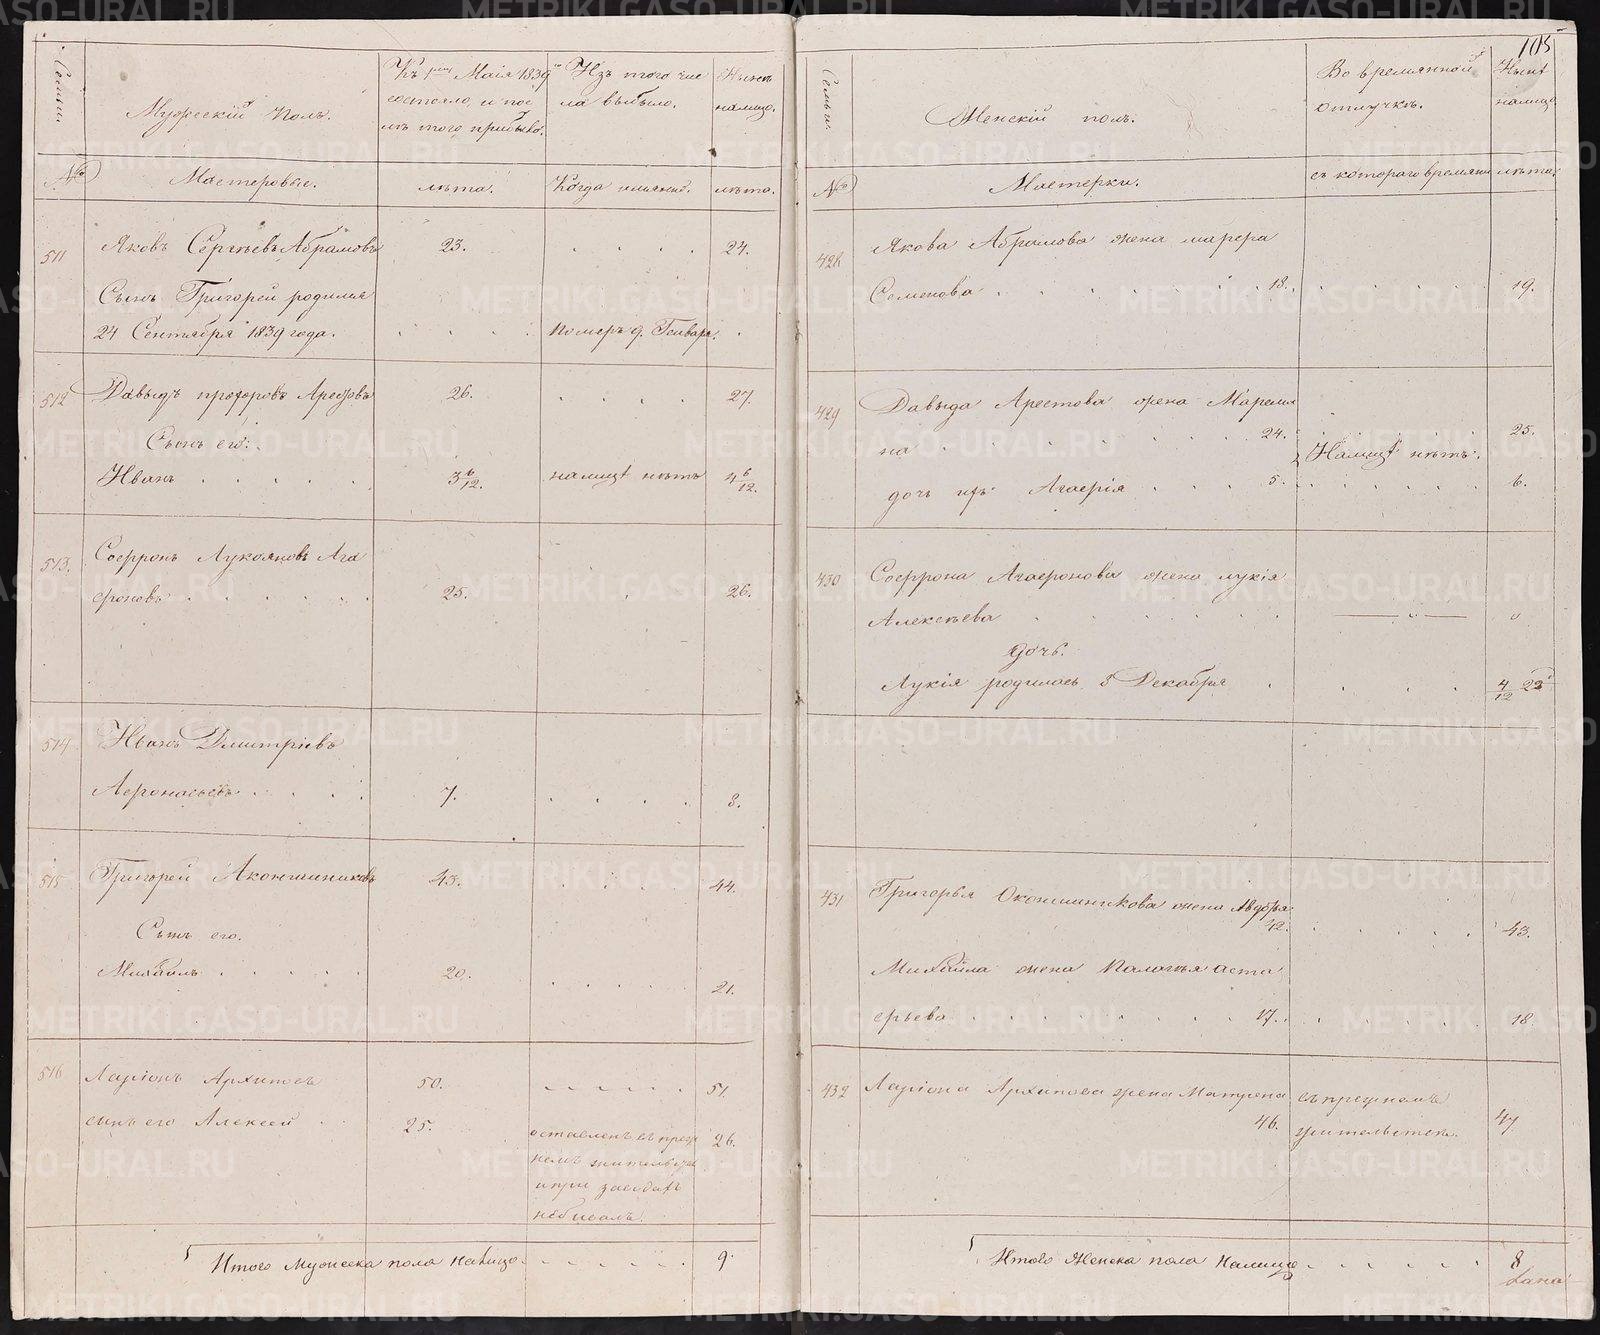 105
Семьи.
Мужескій Полъ.
Къ 1му Маія 1839
состояло, и пос
лѣ того прибыло.
Изъ того чис
ла выбыло.
Нынѣ
налицо.
№
Мастеровые.
лѣта.
Когда имянно.
лѣта.
511
Яковъ Сергѣевъ Абрамовъ
23.
24.
Сынъ Григорей родился
24 Сентября 1839 года.
померъ 9. Генваря.
512
Давыдъ профоровъ Арефовъ
26.
27.
Сынъ его:
Иванъ
3 6/12.
налицѣ нѣтъ
4 6/12.
513.
Софронъ Лукояновъ Ага
фоновъ
25.
26.
514
Иванъ Дмитріевъ
Афонасьевъ
7.
8.
515
Григорей Аконишниковъ
43.
44.
Сынъ его.
Михайлъ
20.
21.
516
Ларіонъ Архиповъ
50.
51.
сынъ его Алексей
25.
оставленъ въ преж
26.
немъ жительст
и при заводахъ
небывалъ.
Итого Мужеска пола налицо
9.
Семьи.
Женскій полъ.
Во времянной
отлучкѣ.
Нынѣ
налицо.
№
Мастерки.
съ котораго времяни
лѣта.
428
Якова Абрамова жена марфа
Семенова
18.
19.
429
Давыда Арестова жена Мареми
на
24.
25.
Налицѣ нѣтъ.
дочь ихъ Агафія
5.
6.
430
Софрона Агафонова жена лукія
Алексѣева
дочь.
Лукія родилась 8 Декабря
4/12 22
431
Григорья Оконишникова жена Авдотья
42.
43.
Михайла жена Палагѣя аста
фьева
17.
18
432
Ларіона Архипова жена Матрена
въ прежнемъ
46.
жительствѣ.
47
Итого Женска пола налицо
8